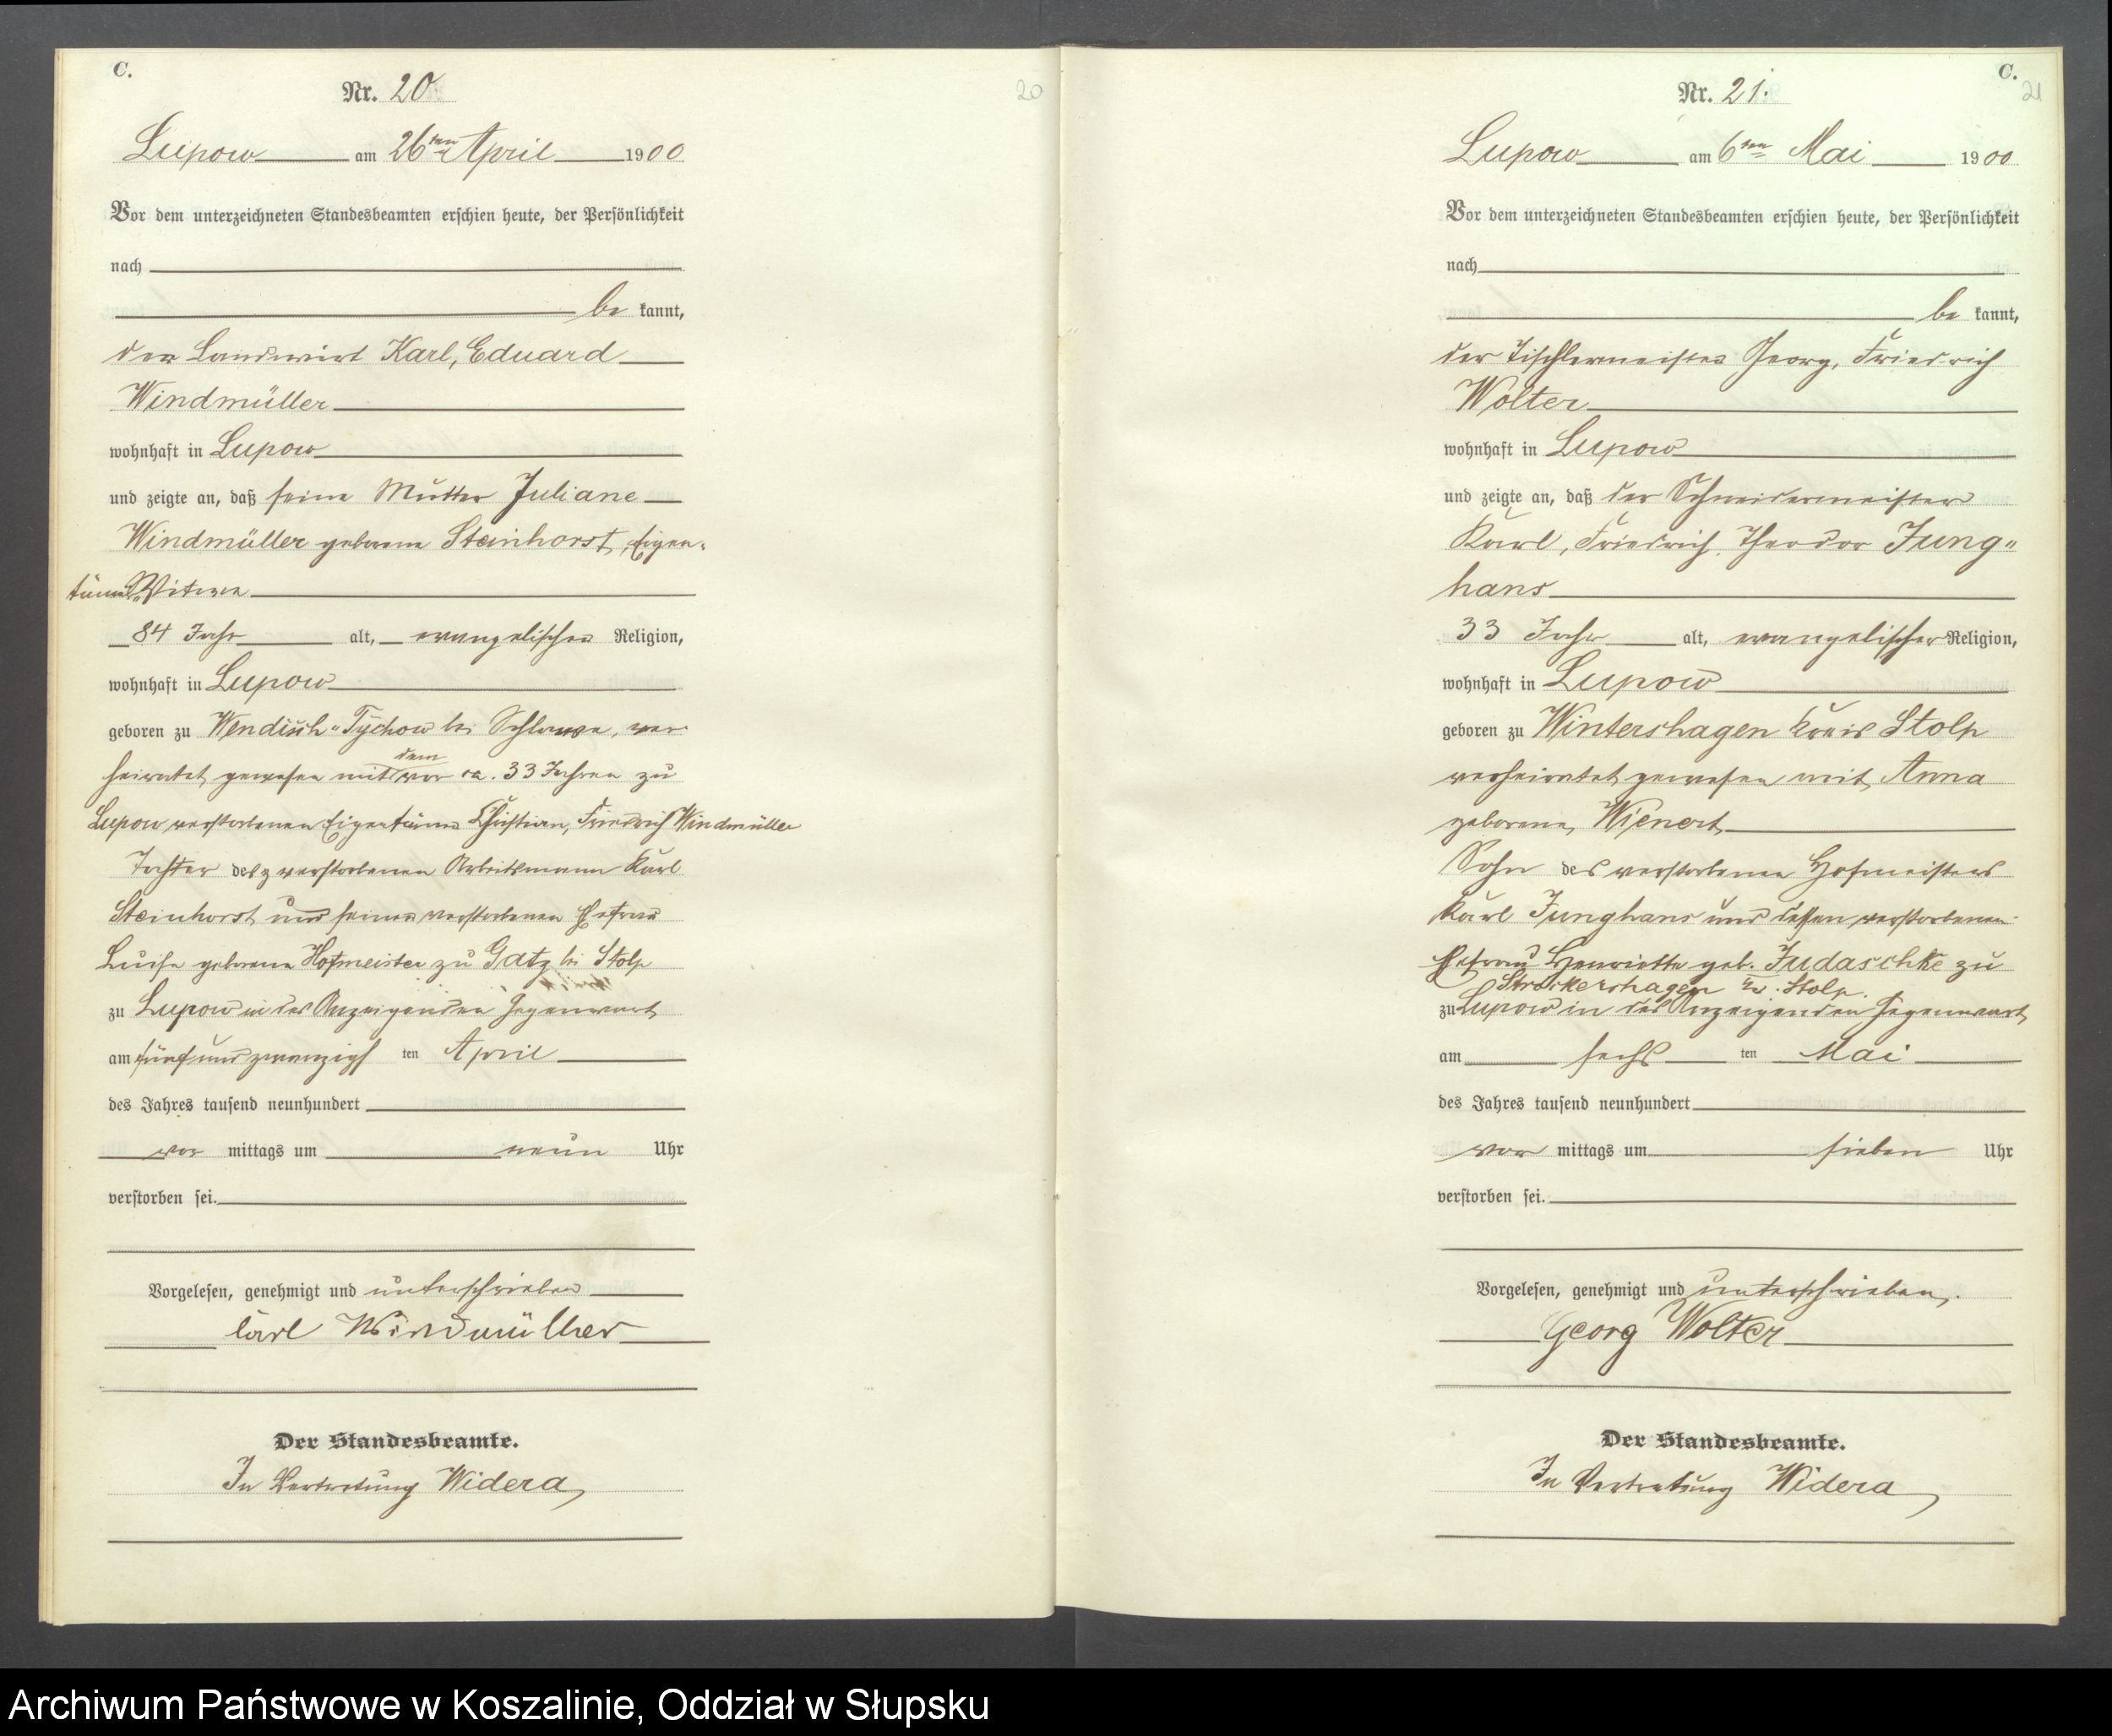 C.
Nr. 20
20
Lupow am 26ten April 1900
Vor dem unterzeichneten Standesbeamten erschien heute, der Persönlichkeit
nach
be kannt,
der Landwirt Karl, Eduard
Windmüller
wohnhaft in Lupow
und zeigte an, daß seine Mutter Juliane
Windmüller geborene Steinhorst, Eigen-
tümer Witwe
84 Jahr alt, evangelischer Religion,
wohnhaft in Lupow
geboren zu Wendisch-Tychow bei Schlawe, ver
heiratet gewesen mit dem vor ca. 33 Jahren zu
Lupow verstorbenen Eigentümer Christian, Friedrich Windmüller
Tochter des verstorbenen Arbeitsmann Karl
Steinhorst und seiner verstorbenen Ehefrau
Luise geborene Hofmeister zu Gatz bei Stolp
zu Lupow in des Anzeigenden Gegenwart
am fünf und zwanzigs ten April
des Jahres tausend neunhundert
vor mittags um neun Uhr
verstorben sei.
Vorgelesen, genehmigt und unterschrieben
Carl Windmüller
Der Standesbeamte.
In Vertretung Widera
C.
Nr. 21.
21
Lupow am 6ten Mai 1900
Vor dem unterzeichneten Standesbeamten erschien heute, der Persönlichkeit
nach
be kannt,
der Tischlermeister Georg, Friedrich
Wolter
wohnhaft in Lupow
und zeigte an, daß der Schneidermeister
Karl, Friedrich, Theodor Jung-
hans
33 Jahr alt, evangelischer Religion,
wohnhaft in Lupow
geboren zu Wintershagen Kreis Stolp
verheiratet gewesen mit Anna
geborene Wienert
Sohn des verstorbenen Hofmeisters
Karl Junghans und dessen verstorbenen
Ehefrau Henriette geb. Judaschke zu
Streckershagen Kr. Stolp.
zu Lupow in des Anzeigenden Gegenwart
am sechs ten Mai
des Jahres tausend neunhundert
vor mittags um sieben Uhr
verstorben sei.
Vorgelesen, genehmigt und unterschrieben.
Georg Wolter
Der Standesbeamte.
In Vertretung Widera
Archiwum Państwowe w Koszalinie, Oddział w Słupsku